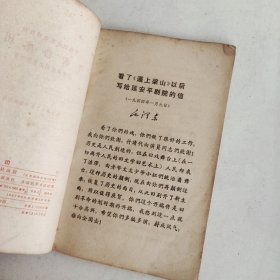 看了《逼上梁山》以后
写给延安平剧院的信
(一九四四年一月九日)
毛泽东
看了你们的戏，你们做了很好的工作，
我向你们致谢，并请代向演员同志们致谢！
历史是人民创造的，但在旧戏舞台上(在一
切离开人民的旧文学旧艺术上)人民却成
了渣滓，由老爷太太少爷小姐们统治着舞
台，这种历史的颠倒，现在由你们再颠倒过
来，恢复了历史的面目，从此旧剧开了新生
面，所以值得庆贺。你们这个开端将是旧
剧革命的划时期的开端，我想到这一点就
十分高兴，希望你们多编多演，蔚成风气，
推向全国去！